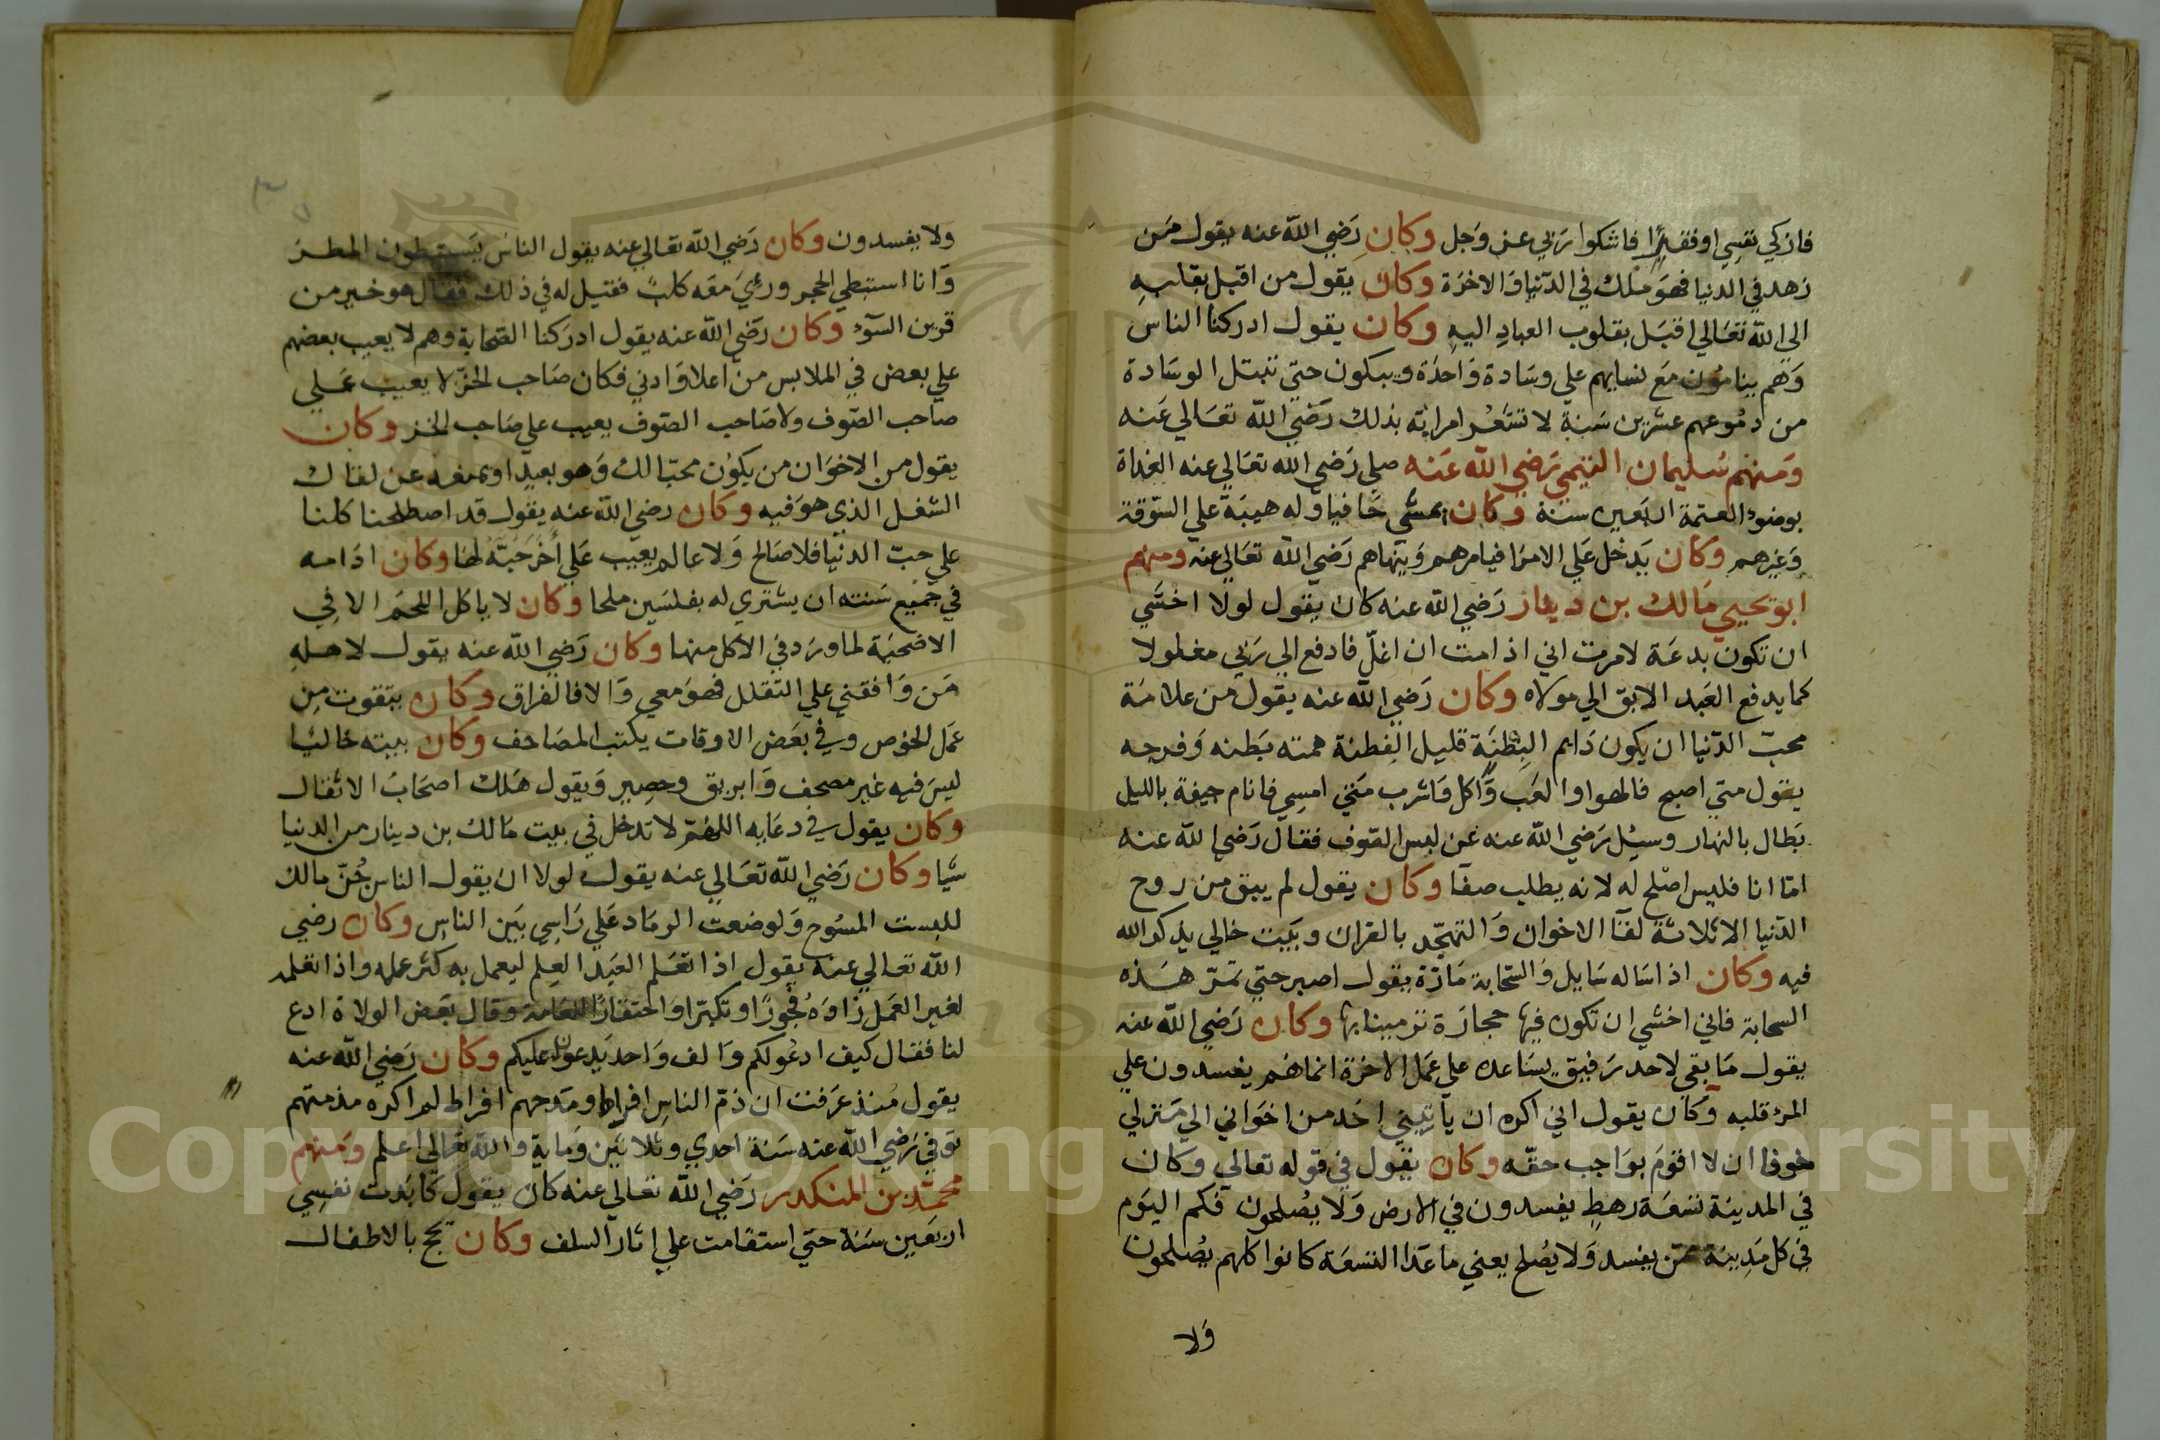 فازكي نفسي او فقيرا فاشكوا ربي عز وجل وكان رضي الله عنه يقول من
زهد في الدنيا فهو ملك في الدنيا والاخرة وكان يقول من اقبل بقلبه
الى الله تعالي اقبل بقلوب العباد اليه وكان يقول ادركنا الناس
وهم ينامون مع نسايهم علي وسادة واحدة ويبكون حتي تبتل الوسادة
من دموعهم عشرين سنة لا تشعر امراته بذلك رضي الله تعالي عنه
ومنهم سليمان التيمي رضي الله عنه صلي رضي الله تعالي عنه الغداة
بوضوء العتمة اربعين سنة وكان يمشي حافيا وله هيبة علي السوقة
وغيرهم وكان يدخل علي الامرا فيامرهم وينهاهم رضي الله تعالي عنه ومنهم
ابو يحيي مالك بن دينار رضي الله عنه كان يقول لولا اخشي
ان تكون بدعة لامرت اني اذا مت ان اغل فادفع الي ربي مغلولا
كما يدفع العبد الابق الي مولاه وكان رضي الله عنه يقول من علامة
محب الدنيا ان يكون دايم البطنة قليل الفطنة همته بطنه وفرجه
يقول متي اصبح فالهوا والعب واكل واشرب متي امسي فانام جيفة بالليل
بطال بالنهار وسيل رضي الله عنه عن لبس الصوف فقال رضي الله عنه
اما انا فليس اصلح له لانه يطلب صفا وكان يقول لم يبق من روح
الدنيا الا ثلاثة لقا الاخوان والتهجد بالقران وبيت خالي يذكر الله
فيه وكان اذا ساله سايل والسحابة مارة يقول اصبر حتي تمر هذه
السحابة فاني اخشي ان تكون فيها حجارة ترمينا بها وكان رضي الله عنه
يقول ما بقي لاحد رفيق يساعده علي عمل الاخرة انما هم يفسدون علي
المرء قلبه وكان يقول اني اكره ان ياتيني احد من اخواني الي منزلي
خوفا ان لا اقوم بواجب حقه وكان يقول في قوله تعالي وكان
في المدينة تسعة رهط يفسدون في الارض ولا يصلحون فكم اليوم
في كل مدينة ممن يفسد ولا يصلح يعني ما عدا التسعة كانوا كلهم يصلحون
ولا
ولا يفسدون وكان رضي الله تعالي عنه يقول الناس يستبطون المطر
وانا استبطي الحجر ورؤي معه كلب فقيل له في ذلك فقال هو خير من
قرين السوء وكان رضي الله عنه يقول ادركنا الصحابة وهم لا يعيب بعضهم
علي بعض في الملابس من اعلا وادني فكان صاحب الخز لا يعيب علي
صاحب الصوف ولا صاحب الصوف يعيب علي صاحب الخز وكان
يقول من الاخوان من يكون محبا لك وهو بعيد او يمنعه عن لقاك
الشغل الذي هو فيه وكان رضي الله عنه يقول قد اصطلحنا كلنا
علي حب الدنيا فلا صالح ولا عالم يعيب علي اخر حبته لها وكان ادامه
في جميع سنته ان يشتري له بفلسين ملحا وكان لا ياكل اللحم الا في
الاضحية لما ورد في الاكل منها وكان رضي الله عنه يقول لاهله
من وافقني علي التقلل فهو معي والا فالفراق وكان يتقوت من
عمل الخوص وفي بعض الاوقات يكتب المصاحف وكان بيته خاليا
ليس فيه غير مصحف وابريق وحصير ويقول هلك اصحاب الاثقال
وكان يقول في دعايه اللهم لا تدخل في بيت مالك بن دينار من الدنيا
شيا وكان رضي الله تعالي عنه يقول لولا ان يقول الناس جن مالك
للبست المسوح ولوضعت الرماد علي راسي بين الناس وكان رضي
الله تعالي عنه يقول اذا تعلم العبد العلم ليعمل به كثر عمله واذا تعلمه
لغير العمل زاده فجورا وتكبرا واحتقارا للعامة وقال بعض الولاة ادع
لنا فقال كيف ادعولكم والف واحد يدعون عليكم وكان رضي الله عنه
يقول منذ عرفت ان ذم الناس افراط ومدحهم افراط لم اكره مذمتهم
توفي رضي الله عنه سنة احدي وثلاثين وماية والله تعالي اعلم ومنهم
محمد بن المنكدر رضي الله تعالي عنه كان يقول كابدت نفسي
اربعين سنة حتي استقامت علي اثار السلف وكان يحج بالاطفال
Copyright © King Saud University